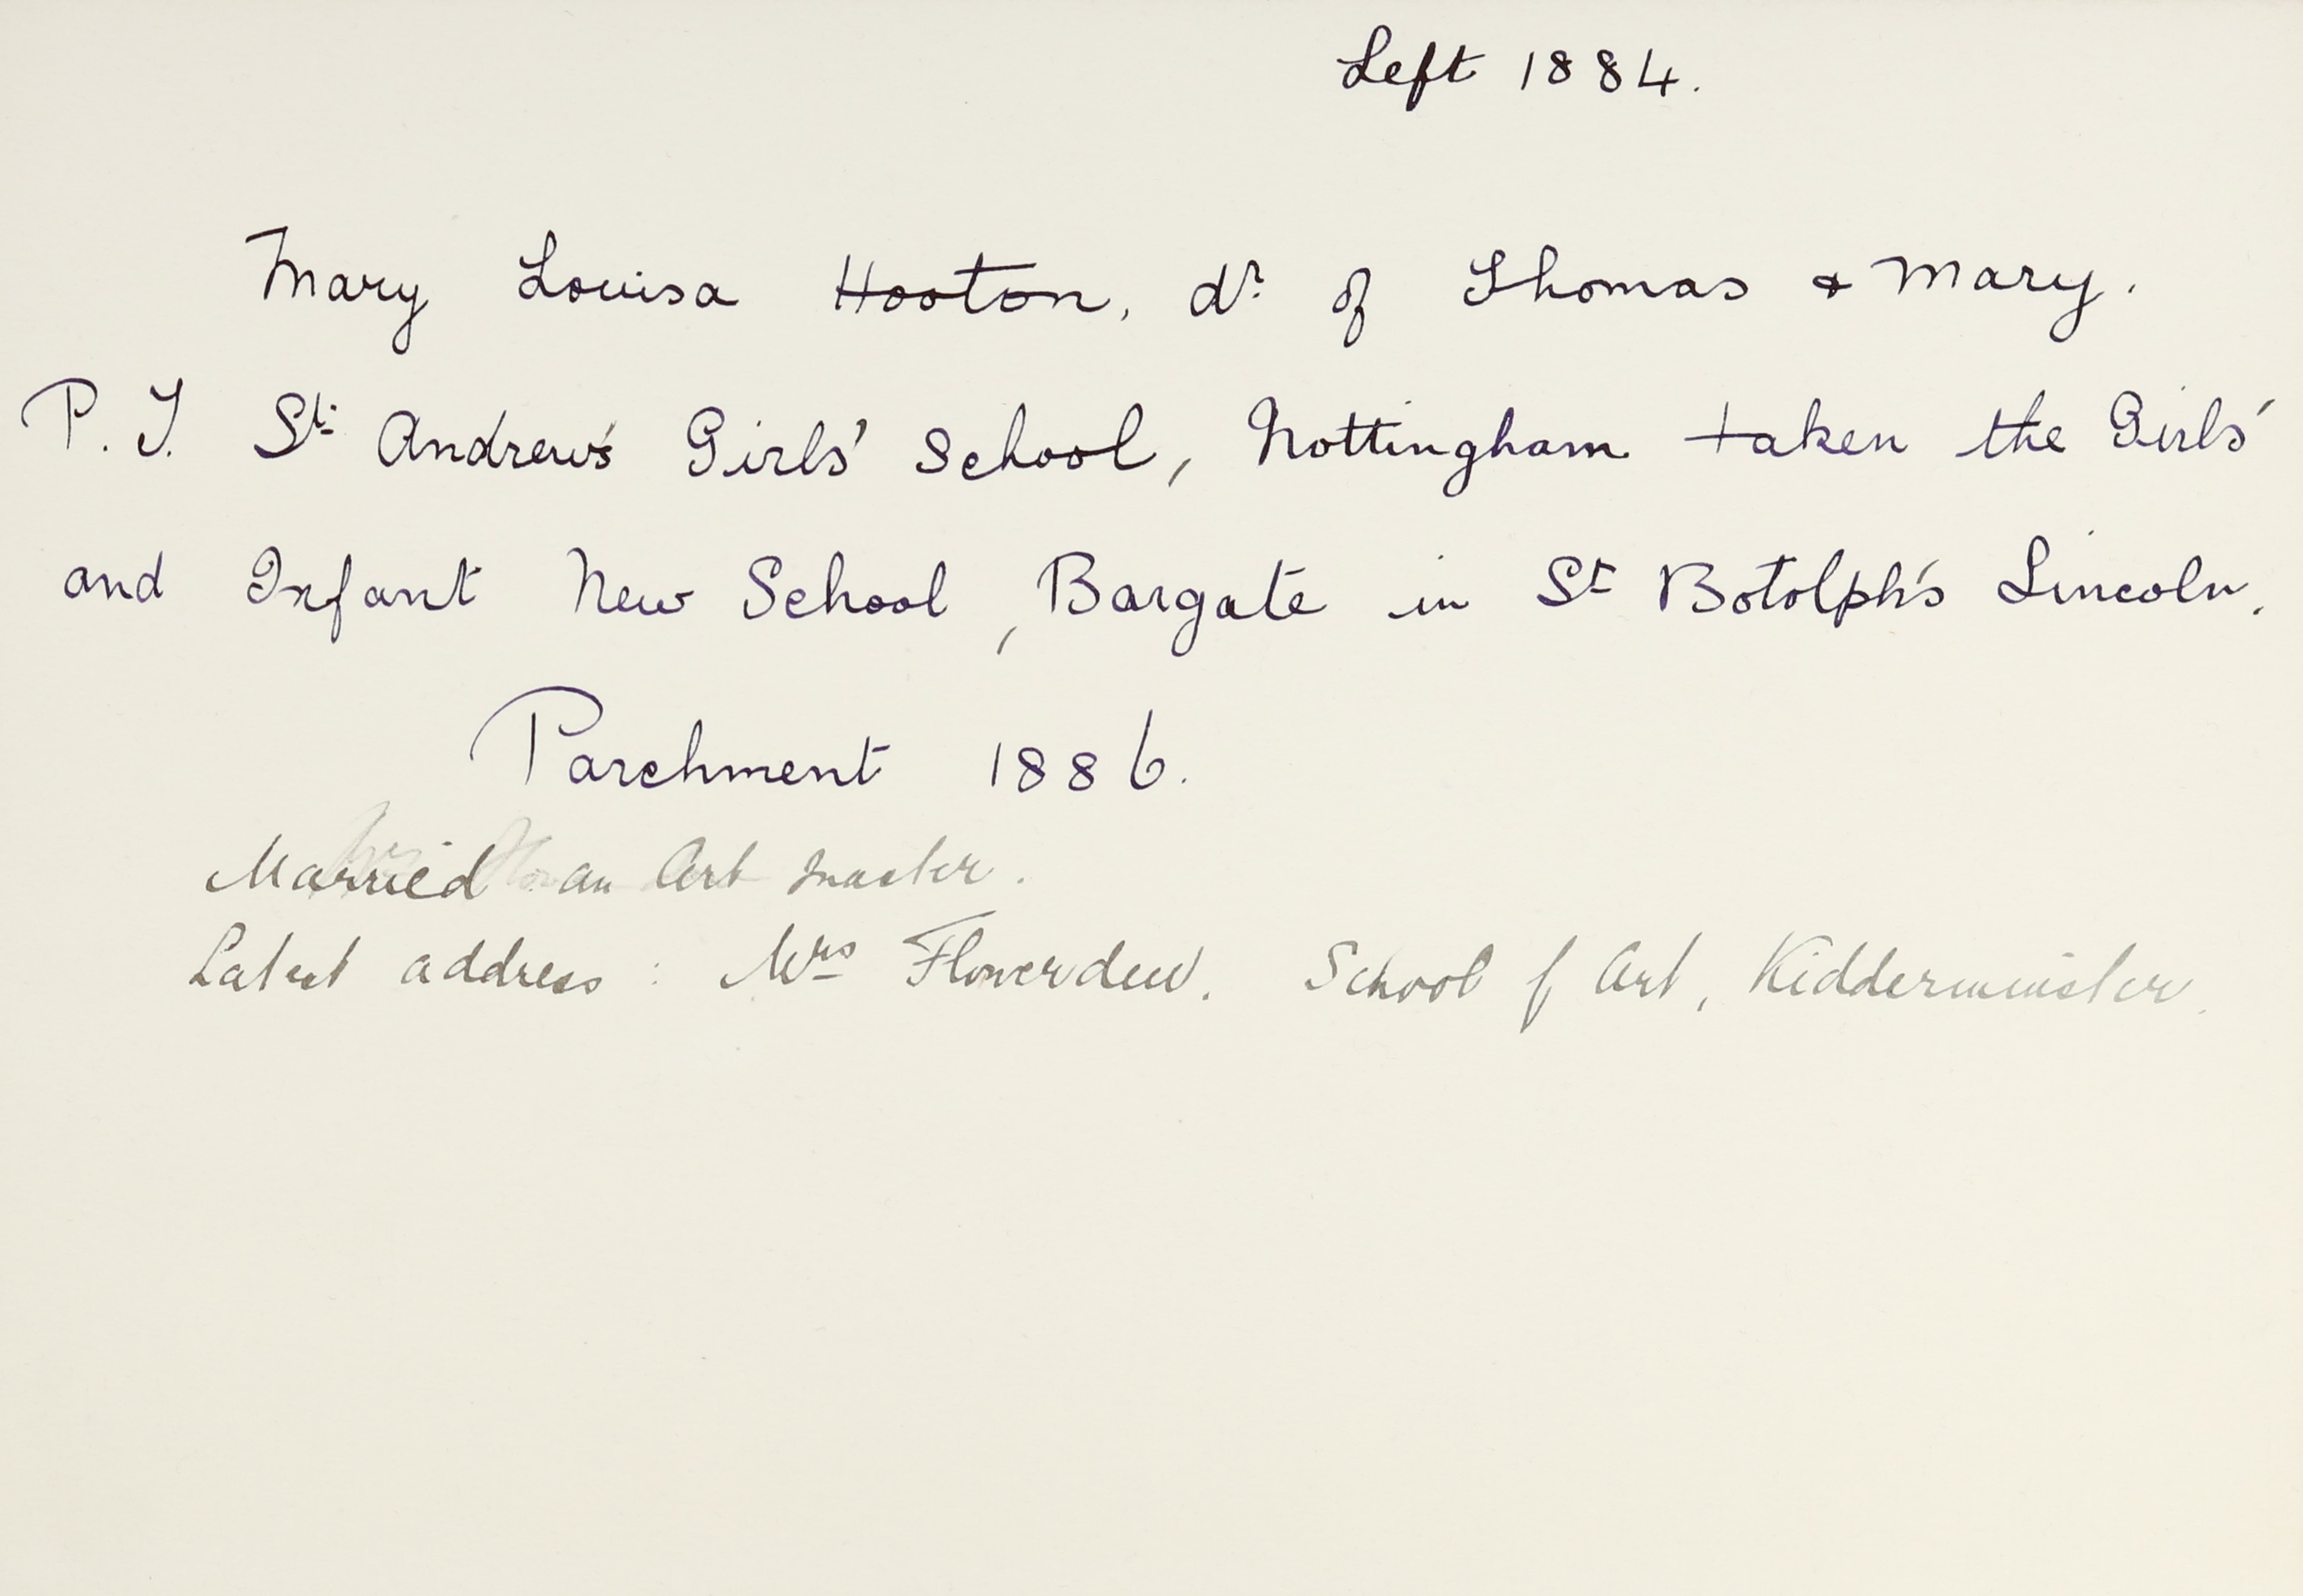 Left 1884.
Mary Louisa Hooton, dr. of Thomas & Mary.
P.T. St. Andrew's Girls' School, Nottingham taken the Girls'
and Infant New School, Bargate in St Botolph's Lincoln.
Parchment 1886.
Married an Art Master.
Latest address : Mrs Flowerdew. School of Art, Kidderminster.